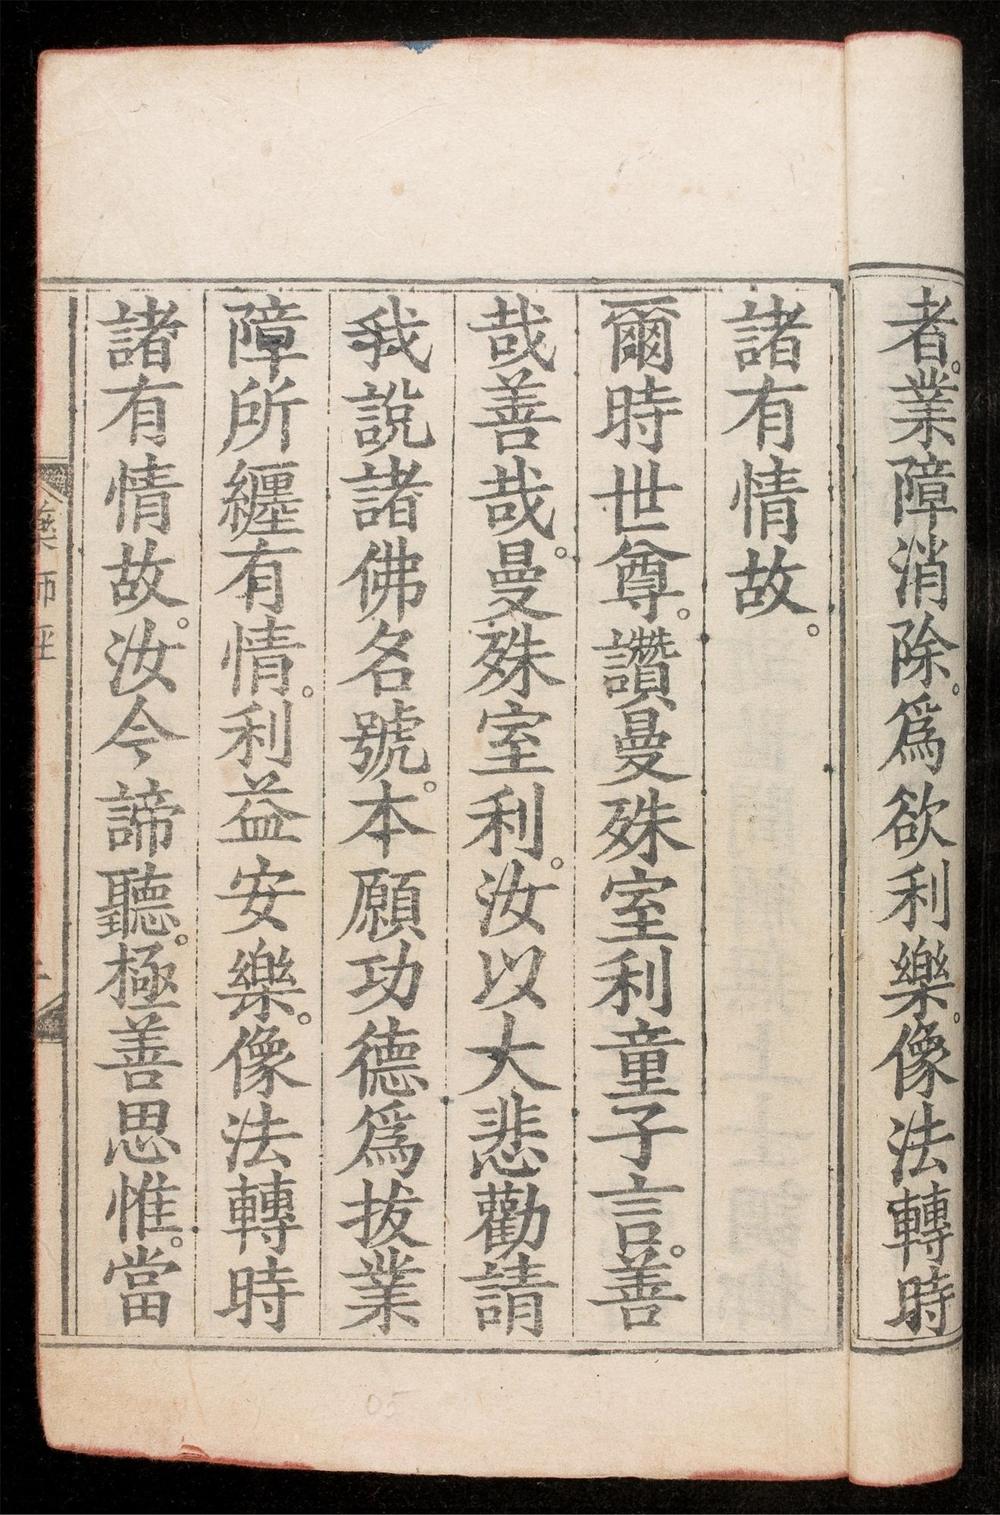 者。業障消除。爲欲利樂。像法轉時
諸有情故。
爾時世尊。讚曼殊室利童子言。善
哉善哉。曼殊室利。汝以大悲勸請
我說諸佛名號。本願功德爲拔業
障所纏有情。利益安樂。像法轉時
諸有情故。汝今諦聽。極善思惟。當
藥師經
05